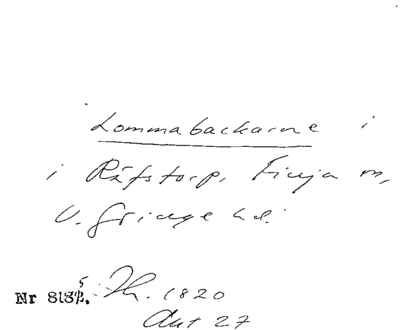 Lommabackarne i
i Räfstorp, Finja m,
V. Göinge hd.
Nr 818 5. Th. 1820
Aut 27